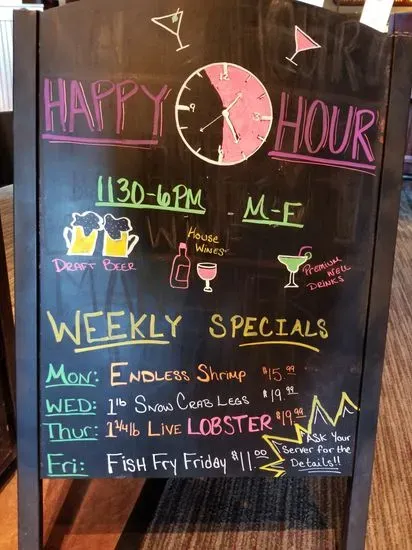 HAPPY HOUR
1130-6PM M-F
House Wines
Draft Beer
Premium Well Drinks
WEEKLY SPECIALS
Mon: Endless Shrimp $15.99
WED: 1lb Snow Crab Legs $19.99
Thur: 1 1/4 lb Live LOBSTER $19.99
Fri: FISH FRY FRIDAY $11.00
*Ask Your
Server for the
Details!!